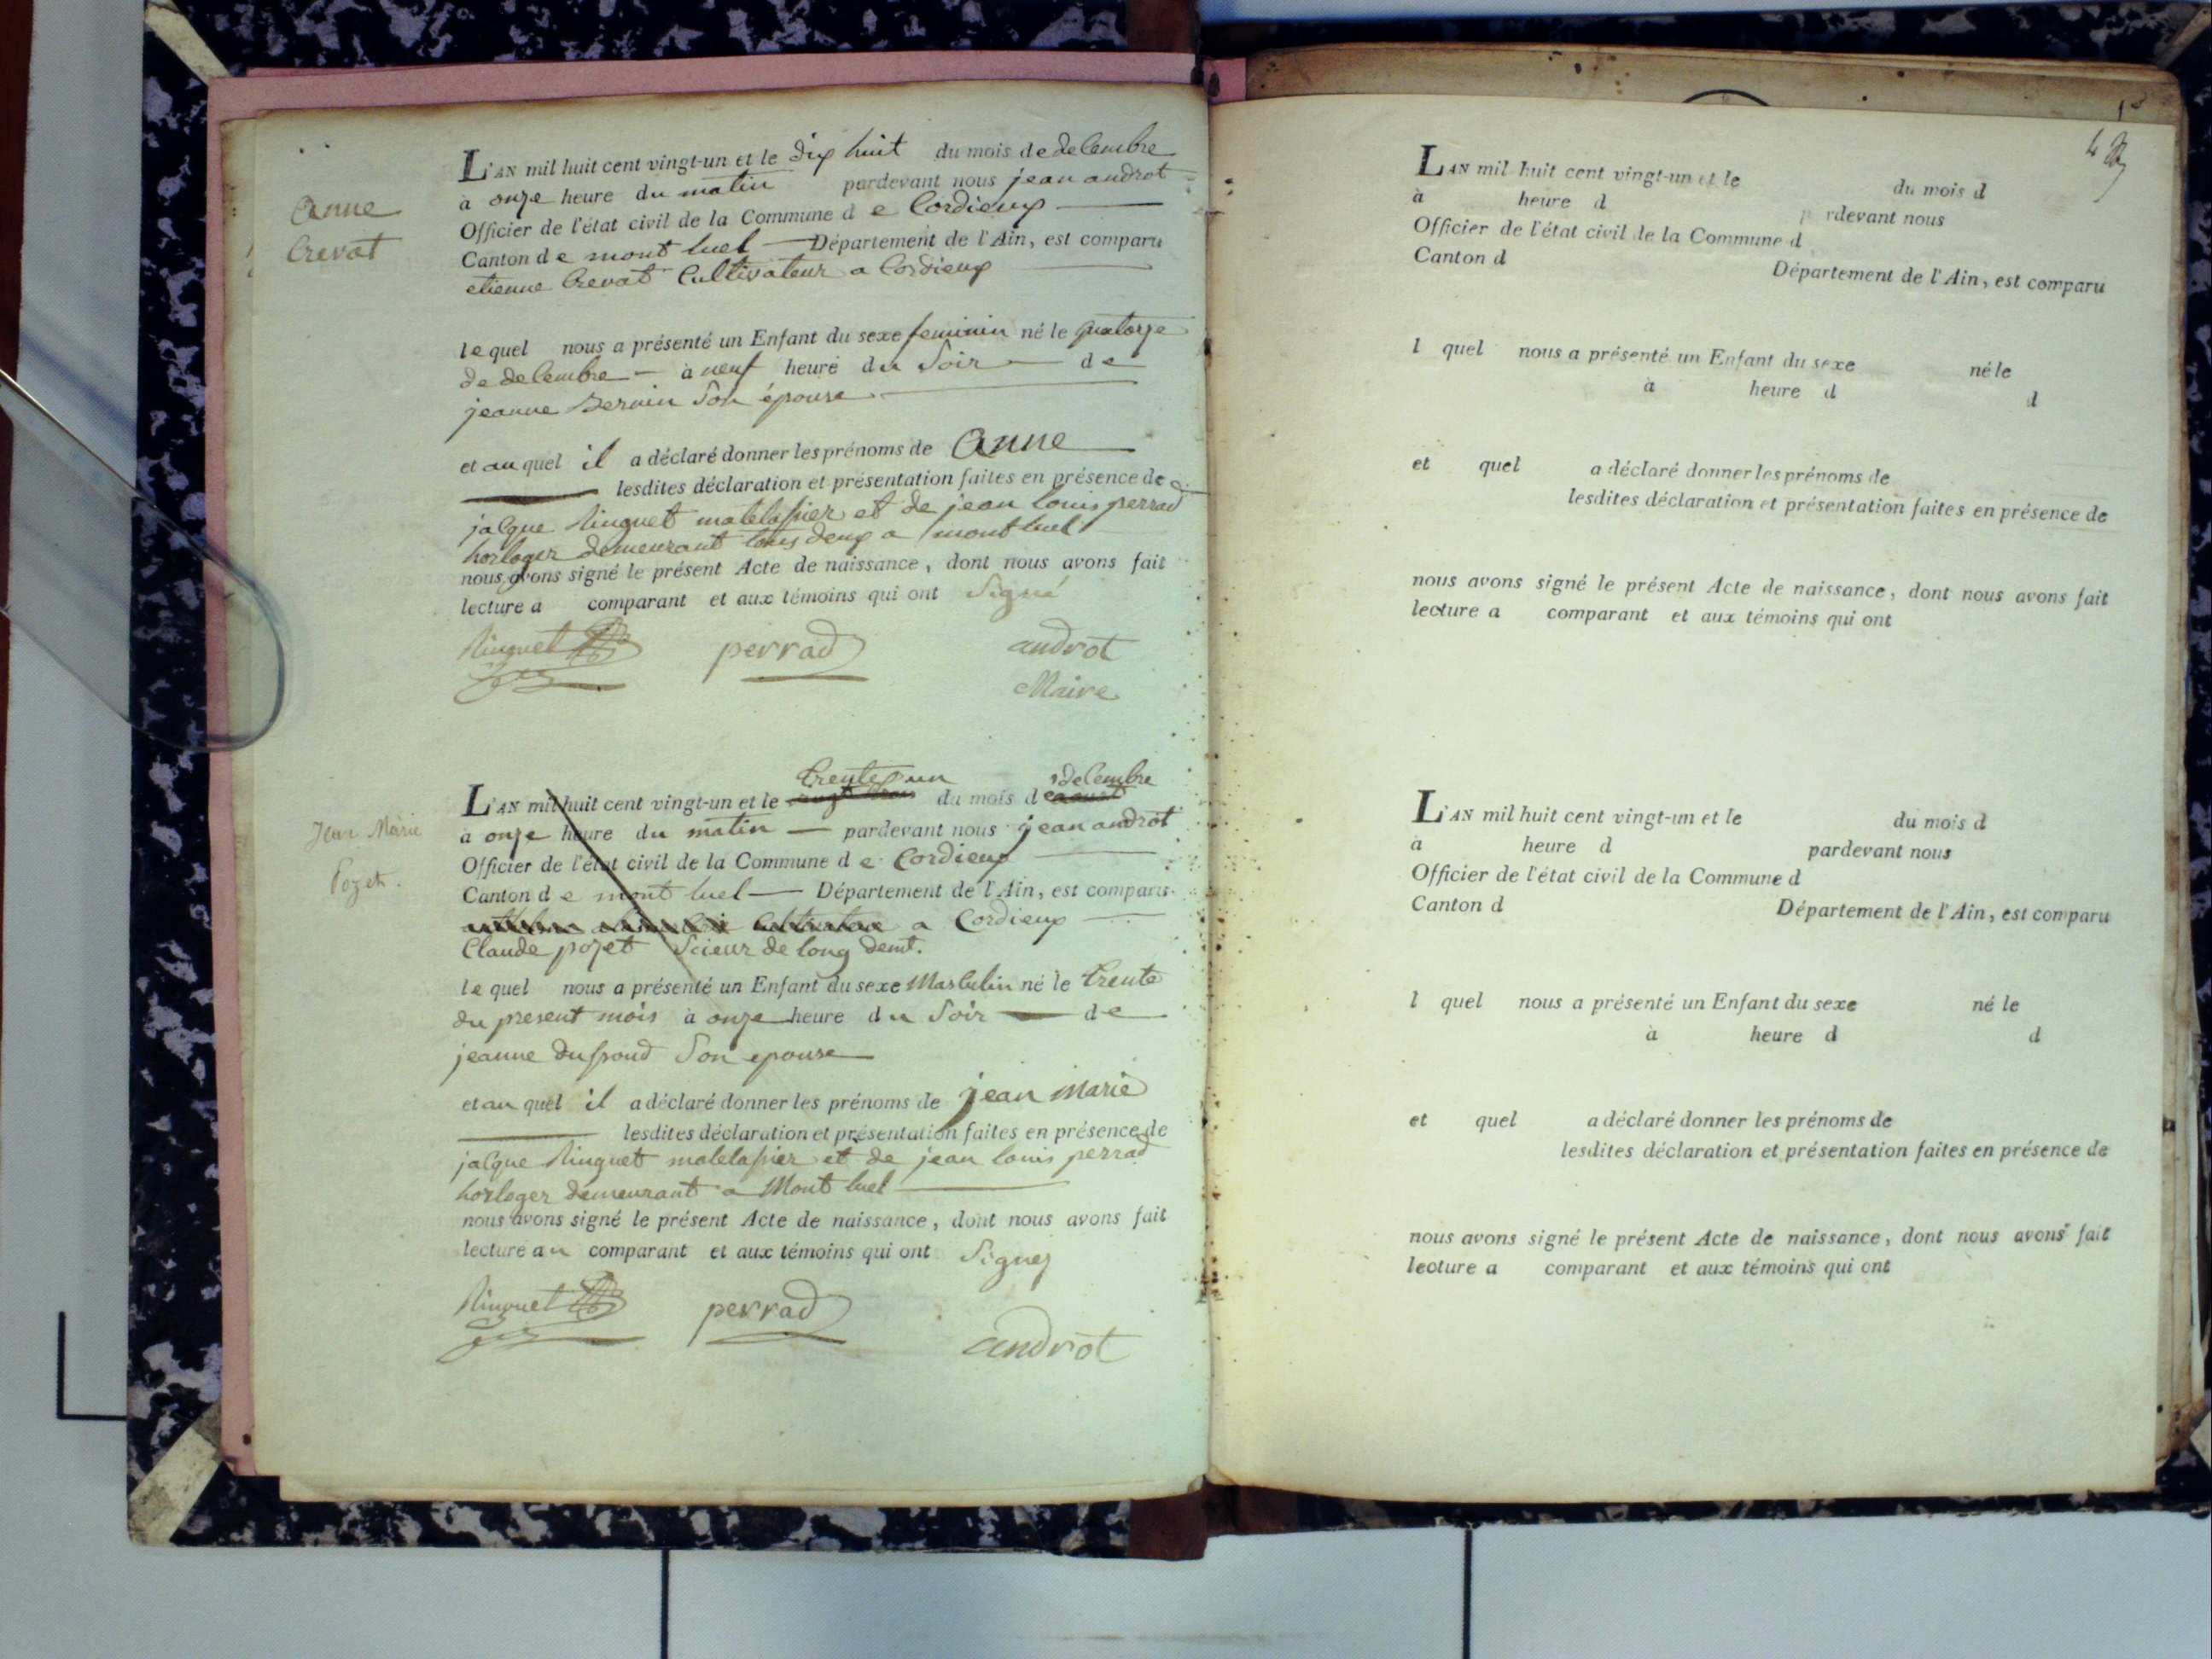 Anne
Crevat
L'AN mil huit cent vingt-un et le dix huit du mois de decembre
à onze heure du matin pardevant nous jean androt
Officier de l'état civil de la Commune de Cordieux
Canton de mont luel Département de l'Ain, est comparu
etienne Crevat Cultivateur a Cordieux
lequel nous a présenté un Enfant du sexe feminin né le quatorze
de decembre à neuf heure du Soir de
jeanne Son épouse
et auquel il a déclaré donner les prénoms de Anne
lesdites déclaration et présentation faites en présence de
jacque Ringuet matelassier et de jean louis perrad
horloger demeurant tous deux a mont luel
nous avons signé le présent Acte de naissance, dont nous avons fait
lecture a comparant et aux témoins qui ont Signé
Ringuet perrad androt
Maire
Jean Marie
Pozet.
trente un decembre
L'AN mil huit cent vingt-un et le du mois d
à onze heure du matin pardevant nous jean androt
Officier de l'état civil de la Commune de Cordieux
Canton de mont luel Département de l'Ain, est comparu
a Cordieux
Claude pozet Scieur de long demt.
lequel nous a présenté un Enfant du sexe Masculin né le trente
du present mois à onze heure du Soir de
jeanne Son epouse
et au quel il a déclaré donner les prénoms de jean Marie
lesdites déclaration et présentation faites en présence de
jacque Ringuet matelassier et de jean louis perrad
horloger demeurant a Mont luel
nous avons signé le présent Acte de naissance, dont nous avons fait
lecture au comparant et aux témoins qui ont Signez
Ringuet perrad
androt
L'AN mil huit cent vingt-un et le du mois d
à heure d pardevant nous
Officier de l'état civil de la Commune d
Canton d Département de l'Ain, est comparu
l quel nous a présenté un Enfant du sexe né le
à heure d d
et quel a déclaré donner les prénoms de
lesdites déclaration et présentation faites en présence de
nous avons signé le présent Acte de naissance, dont nous avons fait
lecture a comparant et aux témoins qui ont
L'AN mil huit cent vingt-un et le du mois d
à heure d pardevant nous
Officier de l'état civil de la Commune d
Canton d Département de l'Ain, est comparu
l quel nous a présenté un Enfant du sexe né le
à heure d d
et quel a déclaré donner les prénoms de
lesdites déclaration et présentation faites en présence de
nous avons signé le présent Acte de naissance, dont nous avons fait
lecture a comparant et aux témoins qui ont